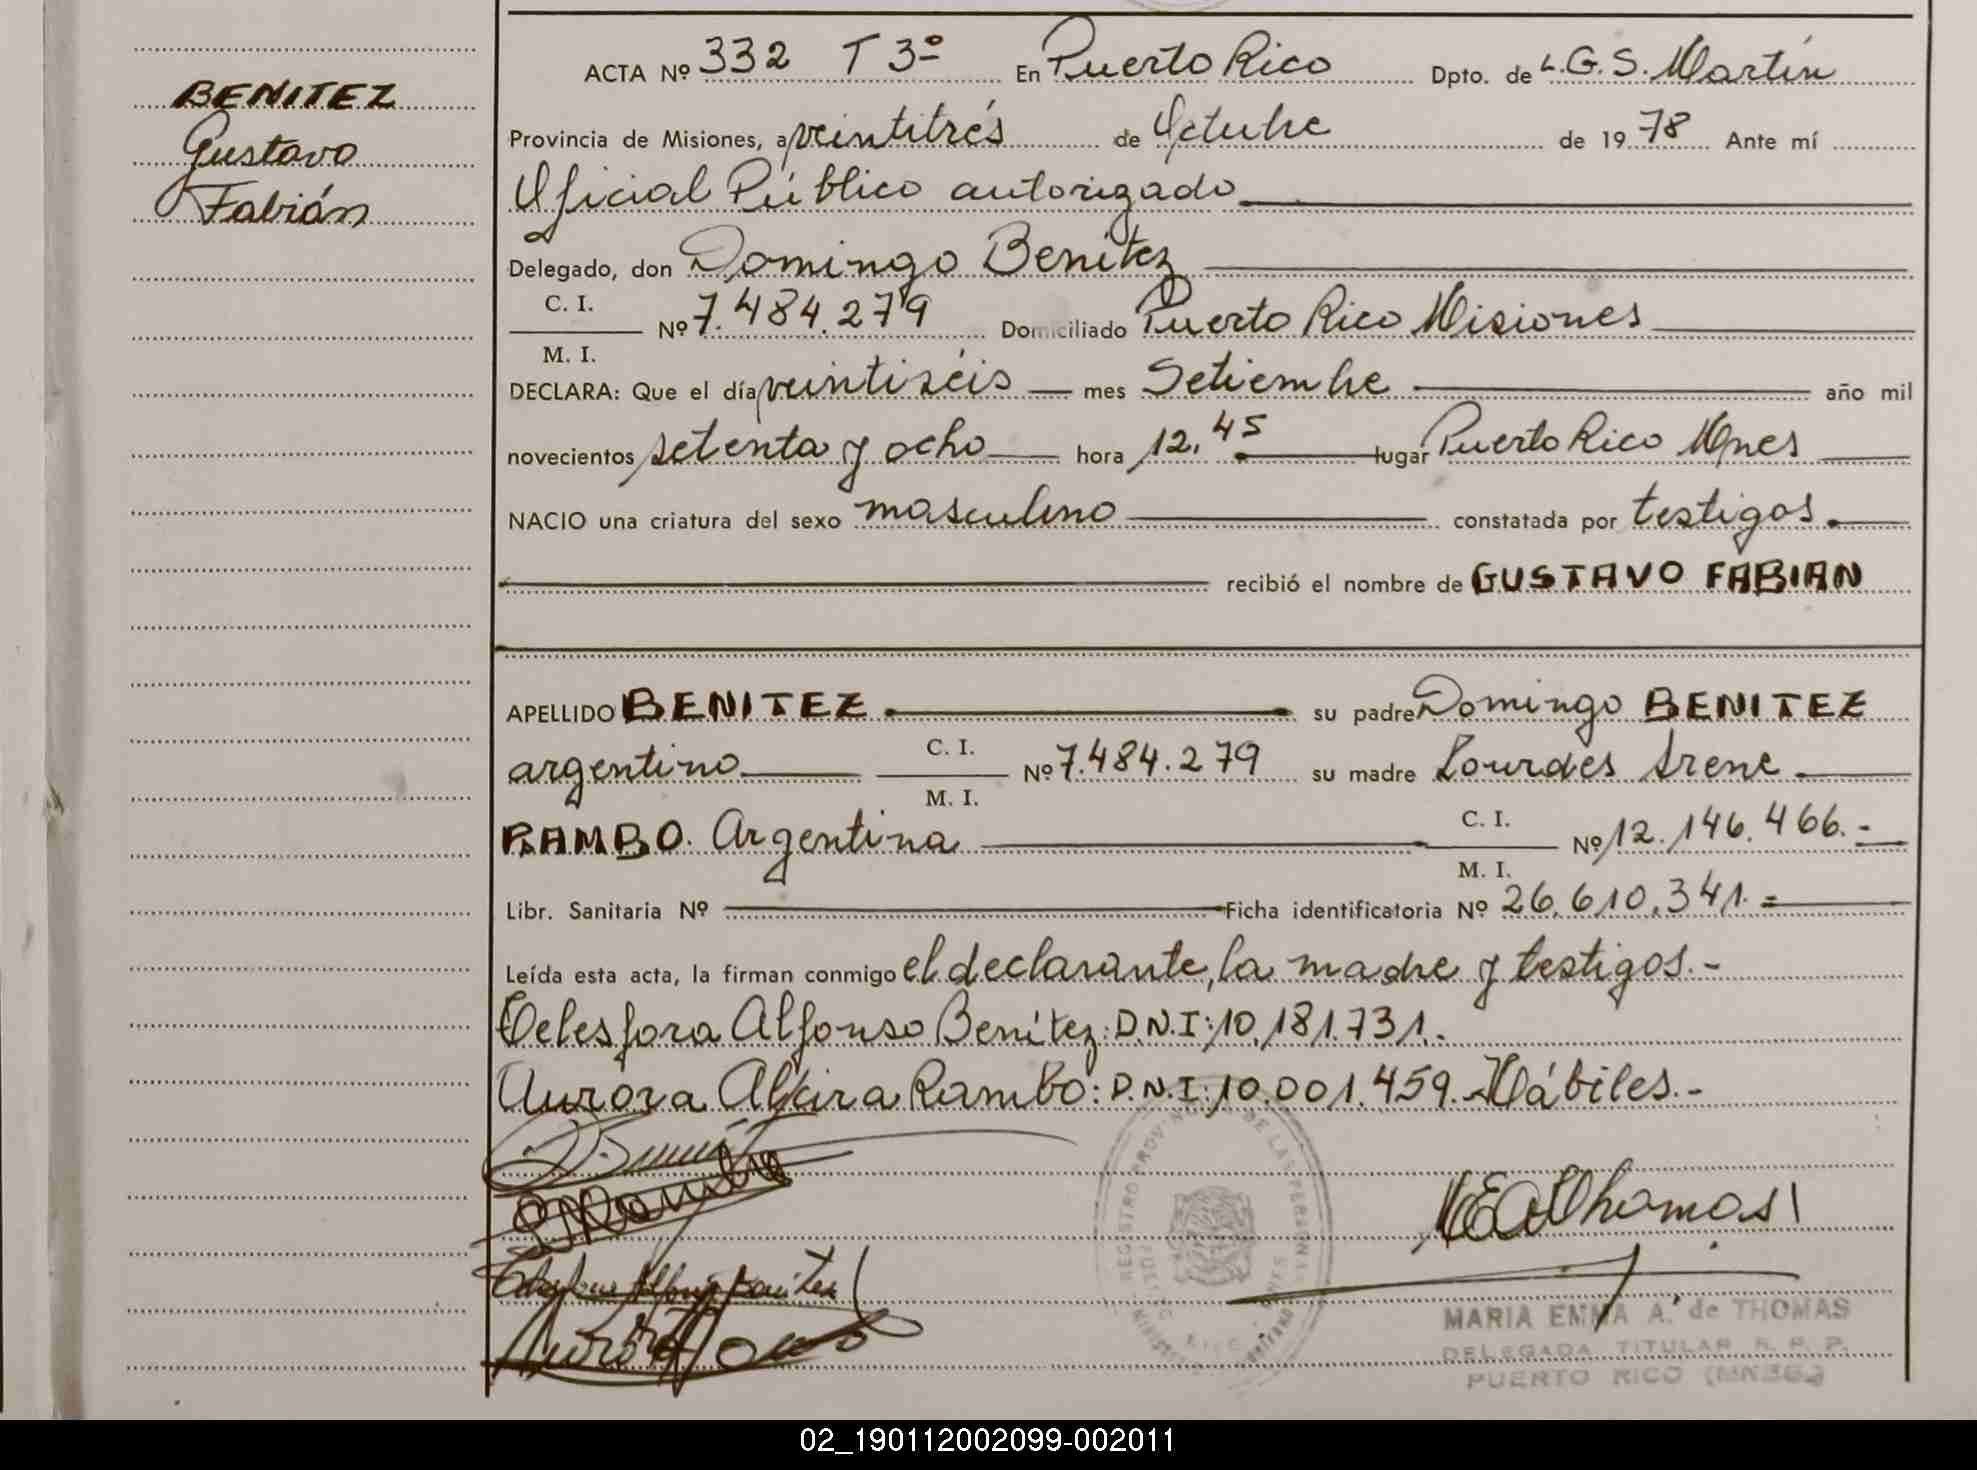 BENITEZ
Gustavo
Fabián
ACTA Nº 332 T 3º En Puerto Rico Dpto. de L.G.S. Martín
Provincia de Misiones, a veintitrés de Octubre de 1978 Ante mí
Oficial Público autorizado
Delegado, don Domingo Benítez
C. I.
M. I.
Nº 7.484.279 Domiciliado Puerto Rico Misiones
DECLARA: Que el día veintiséis mes Setiembre año mil
novecientos setenta y ocho hora 12,45 lugar Puerto Rico Mnes
NACIO una criatura del sexo masculino constatada por testigos.
recibió el nombre de GUSTAVO FABIAN
APELLIDO BENITEZ su padre Domingo BENITEZ
argentino C. I. Nº 7.484.279 su madre Lourdes Irene
M. I.
RAMBO. Argentina C. I. Nº 12.146.466.-
M. I.
Libr. Sanitaria Nº Ficha identificatoria Nº 26.610.341.=
Leída esta acta, la firman conmigo el declarante, la madre y testigos.-
Telesfora Alfonso Benítez: D.N.I: 10.181.731.-
Aurora Alcira Rambo: D.N.I: 10.001.459. Hábiles.-
MEAThomas
REGISTRO PROV. DE LAS PERSONAS
MARIA EMMA A. de THOMAS
DELEGADA TITULAR R. P. P.
PUERTO RICO (MNES.)
02_190112002099-002011